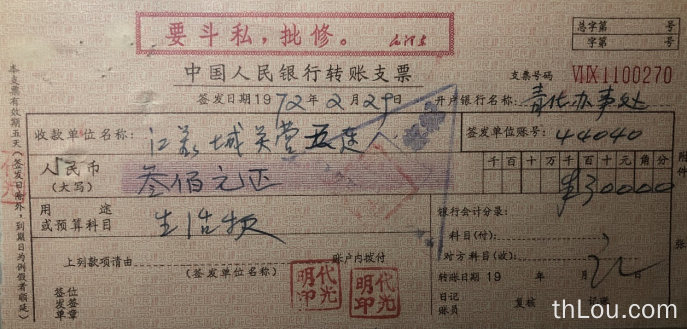 要斗私，批修。
总字第 号
字第 号
中国人民银行转账支票
支票号码 VIIX1100270
签发日期1972年2月29日
开户银行名称：青化办事处
本支票有效期五天（签发日除外，到期日为例假者顺延）
收款单位名称：江苏城关营五连人
签发单位账号：44040
人民币
（大写）
叁佰元正
千百十万千百十元角分
¥30000
附件
张
用途
或预算科目
生活费
银行会计分录：
科目(付)：
对方科目(收)：
上列款项请由
（签发单位名称）
账户内拨付
转账日期19 年 月 日
签发单位签章
代光明印
代光明印
日记账员
复核
记账
thLou.com